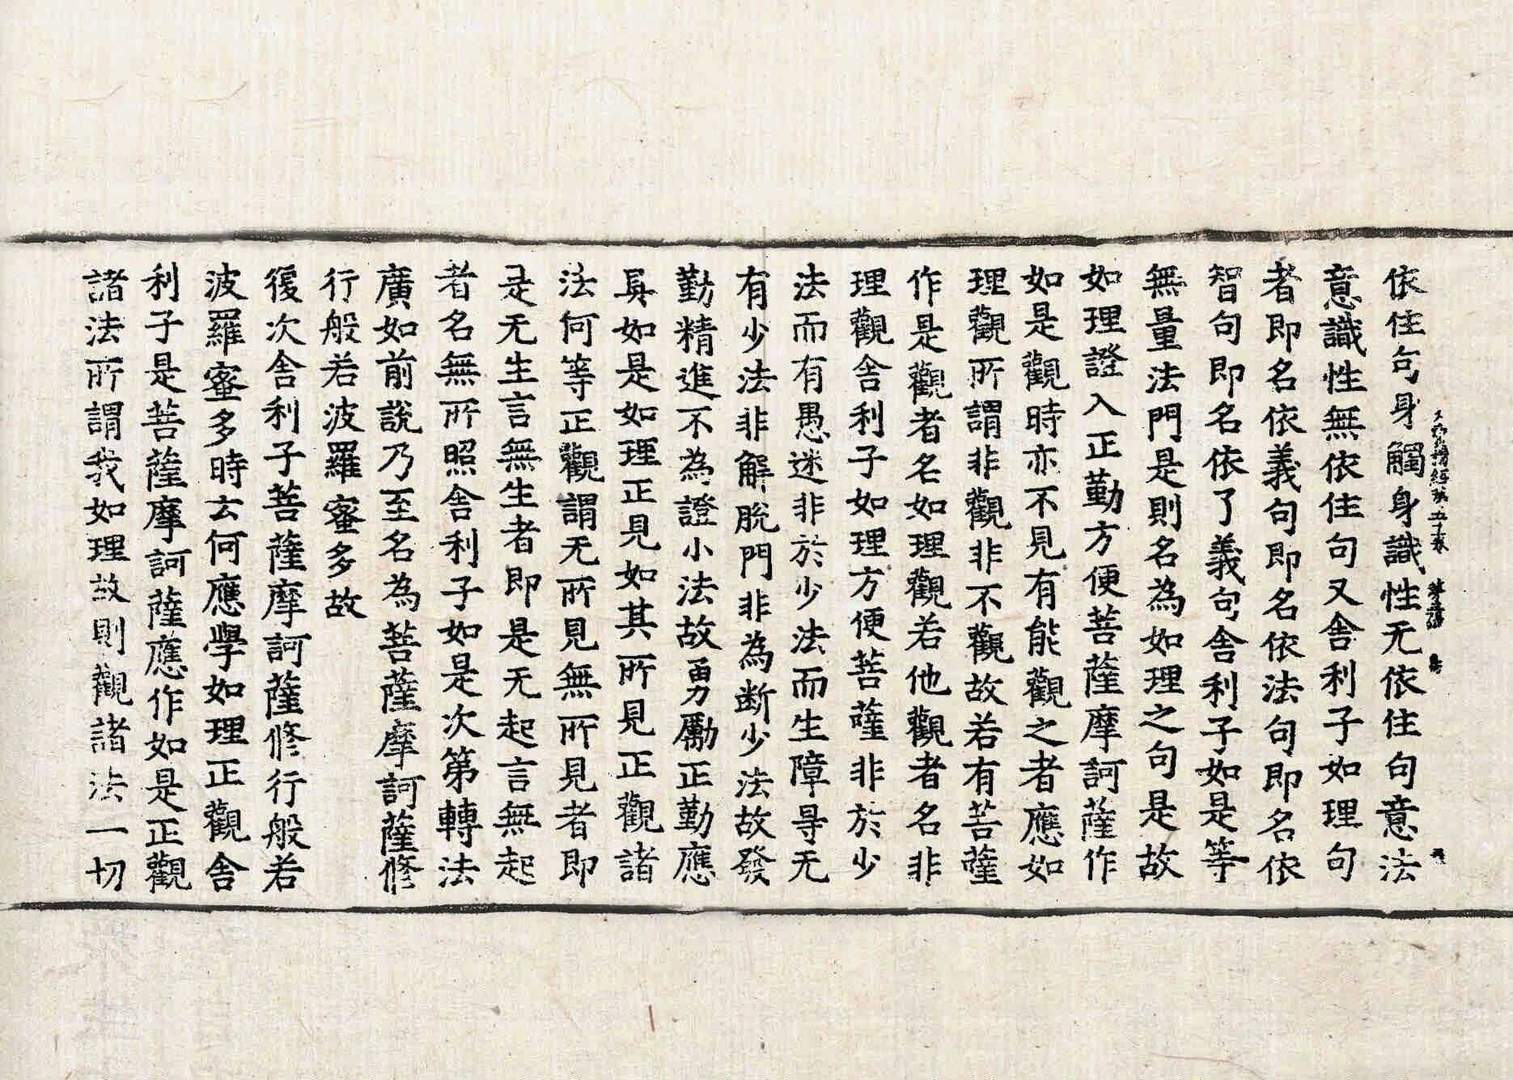 依住句身觸身識性无依住句意法
意識性無依住句又舍利子如理句
者即名依義句即名依法句即名依
智句即名依了義句舍利子如是等
無量法門是則名為如理之句是故
如理證入正勤方便菩薩摩訶薩作
如是觀時亦不見有能觀之者應如
理觀所謂非觀非不觀故若有菩薩
作是觀者名如理觀若他觀者名非
理觀舍利子如理方便菩薩非於少
法而有愚迷非於少法而生障㝵无
有少法非解脫門非為断少法故發
勤精進不為證小法故勇勵正勤應
真如是如理正見如其所見正觀諸
法何等正觀謂无所見無所見者即
是无生言無生者即是无起言無起
者名無所照舍利子如是次第轉法
廣如前說乃至名為菩薩摩訶薩修
行般若波羅蜜多故
復次舍利子菩薩摩訶薩修行般若
波羅蜜多時云何應學如理正觀舍
利子是菩薩摩訶薩應作如是正觀
諸法所謂我如理故則觀諸法一切